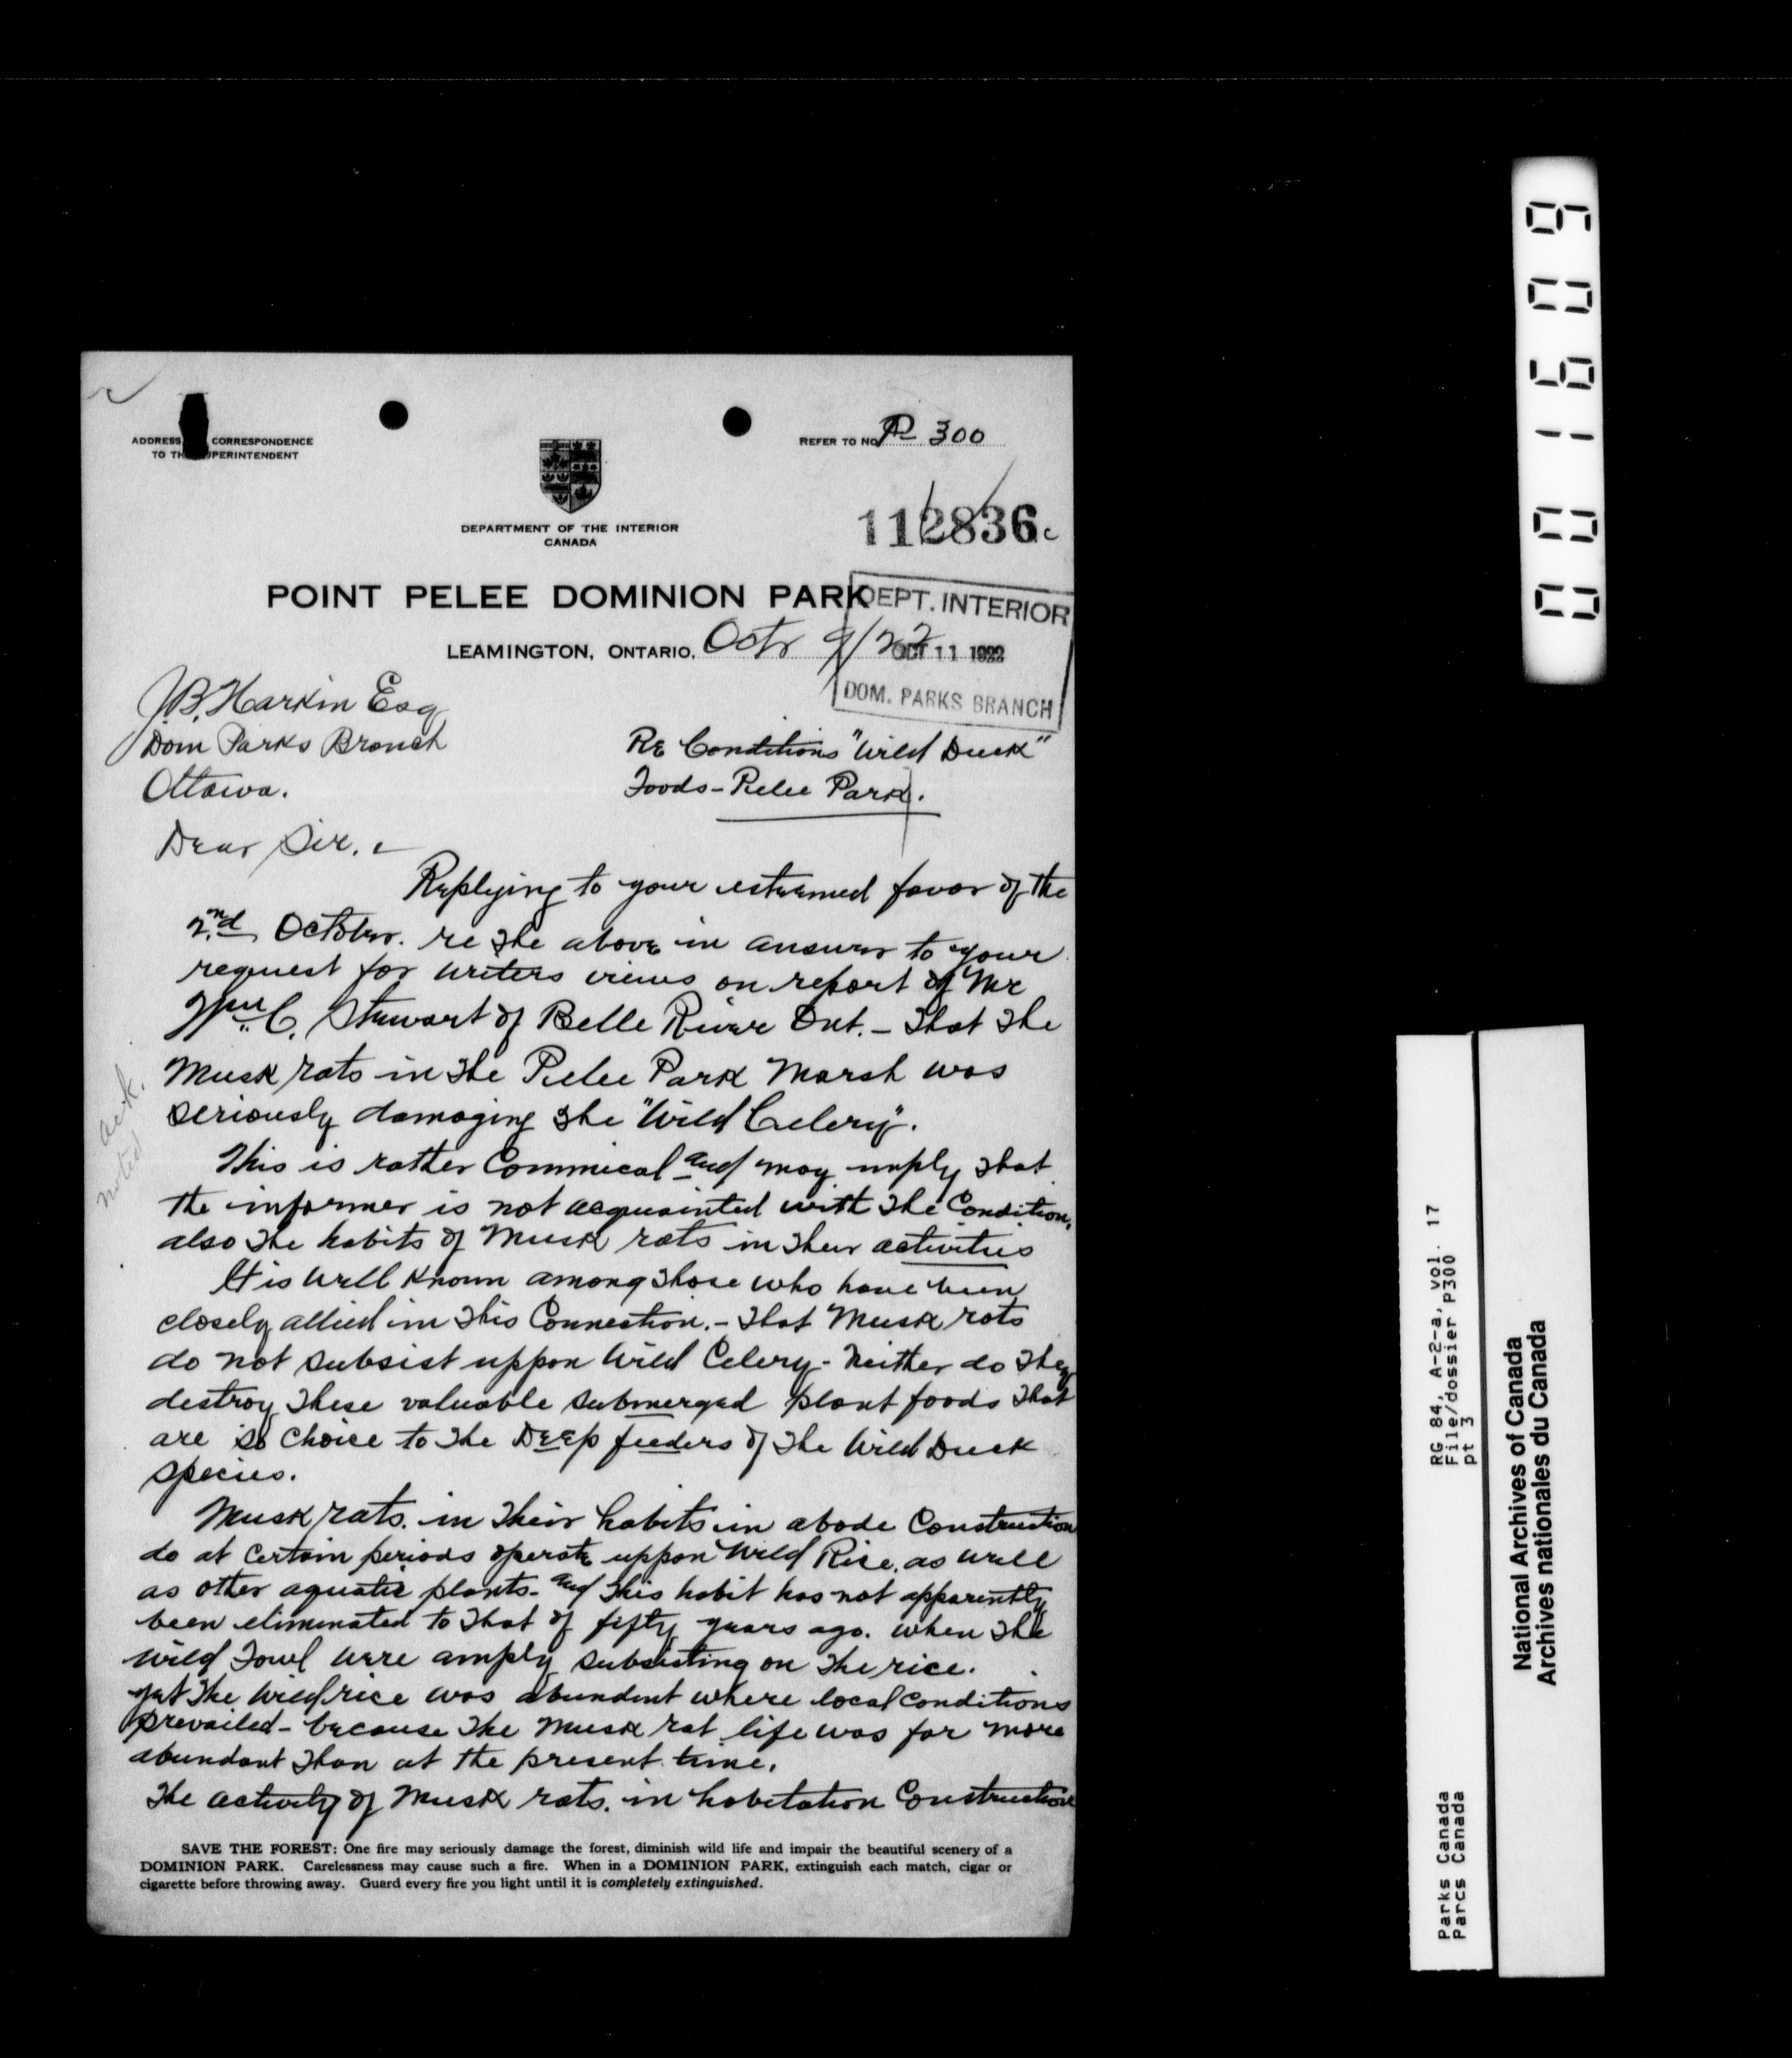 ADDRESS CORRESPONDENCE
TO THE SUPERINTENDENT
REFER TO NO. P 300
DEPARTMENT OF THE INTERIOR
CANADA
112836 c
POINT PELEE DOMINION PARK
DEPT. INTERIOR
OCT 11 1922
DOM. PARKS BRANCH
LEAMINGTON, ONTARIO, Octr 9/22
J.B. Harkin Esq
Dom Parks Branch
Ottawa.
Re Conditions "Wild Duck"
Foods - Pelee Park.
Dear Sir.
Replying to your esteemed favor of the
2nd October. re the above in answer to your
request for writers views on report of Mr
Wm C. Stewart of Belle River Ont. - That the
Musk rats in the Pelee Park Marsh was
seriously damaging the "Wild Celery".
This is rather Commical and may imply that
the informer is not acquainted with the Condition,
also the habits of Musk rats in their activities
It is well known among those who have been
closely allied in this Connection. - That Musk rats
do not subsist uppon Wild Celery - Neither do they
destroy these valuable submerged plant foods that
are so choice to the Deep feeders of the Wild Duck
species.
Musk rats. in their habits in abode Construction
do at certain periods operate uppon Wild Rice. as well
as other aquatic plants - and this habit has not apparently
been eliminated to that of fifty years ago. when the
wild Fowl were amply subsisting on the rice.
yet the Wild rice was abundent where local conditions
prevailed - because the musk rat life was far more
abundant than at the present time.
The activity of Musk rats. in habitation Construction
ack.
noted
SAVE THE FOREST: One fire may seriously damage the forest, diminish wild life and impair the beautiful scenery of a
DOMINION PARK. Carelessness may cause such a fire. When in a DOMINION PARK, extinguish each match, cigar or
cigarette before throwing away. Guard every fire you light until it is completely extinguished.
0016109
RG 84, A-2-a, vol. 17
File/dossier P300
pt 3
Parks Canada
Parcs Canada
National Archives of Canada
Archives nationales du Canada